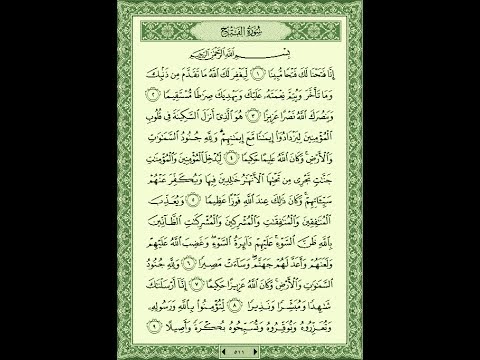 سُورَةُ الْفَتْحِ
بِسْمِ اللَّهِ الرَّحْمَٰنِ الرَّحِيمِ
إِنَّا فَتَحْنَا لَكَ فَتْحًا مُّبِينًا ١ لِّيَغْفِرَ لَكَ اللَّهُ مَا تَقَدَّمَ مِن ذَنۢبِكَ
وَمَا تَأَخَّرَ وَيُتِمَّ نِعْمَتَهُۥ عَلَيْكَ وَيَهْدِيَكَ صِرَٰطًا مُّسْتَقِيمًا ٢
وَيَنصُرَكَ اللَّهُ نَصْرًا عَزِيزًا ٣ هُوَ الَّذِىٓ أَنزَلَ السَّكِينَةَ فِى قُلُوبِ
الْمُؤْمِنِينَ لِيَزْدَادُوٓا۟ إِيمَٰنًا مَّعَ إِيمَٰنِهِمْ ۗ وَلِلَّهِ جُنُودُ السَّمَٰوَٰتِ
وَالْأَرْضِ ۚ وَكَانَ اللَّهُ عَلِيمًا حَكِيمًا ٤ لِّيُدْخِلَ الْمُؤْمِنِينَ وَالْمُؤْمِنَٰتِ
جَنَّٰتٍ تَجْرِى مِن تَحْتِهَا الْأَنْهَٰرُ خَٰلِدِينَ فِيهَا وَيُكَفِّرَ عَنْهُمْ
سَيِّـَٔاتِهِمْ ۚ وَكَانَ ذَٰلِكَ عِندَ اللَّهِ فَوْزًا عَظِيمًا ٥ وَيُعَذِّبَ
الْمُنَٰفِقِينَ وَالْمُنَٰفِقَٰتِ وَالْمُشْرِكِينَ وَالْمُشْرِكَٰتِ الظَّآنِّينَ
بِاللَّهِ ظَنَّ السَّوْءِ ۚ عَلَيْهِمْ دَآئِرَةُ السَّوْءِ ۖ وَغَضِبَ اللَّهُ عَلَيْهِمْ
وَلَعَنَهُمْ وَأَعَدَّ لَهُمْ جَهَنَّمَ ۖ وَسَآءَتْ مَصِيرًا ٦ وَلِلَّهِ جُنُودُ
السَّمَٰوَٰتِ وَالْأَرْضِ ۚ وَكَانَ اللَّهُ عَزِيزًا حَكِيمًا ٧ إِنَّآ أَرْسَلْنَٰكَ
شَٰهِدًا وَمُبَشِّرًا وَنَذِيرًا ٨ لِّتُؤْمِنُوا۟ بِاللَّهِ وَرَسُولِهِۦ
وَتُعَزِّرُوهُ وَتُوَقِّرُوهُ وَتُسَبِّحُوهُ بُكْرَةً وَأَصِيلًا ٩
٥١١